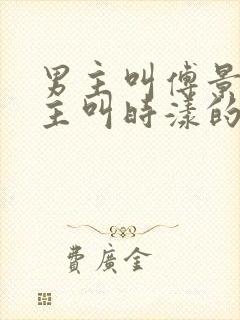 男主叫傅景
主叫時漾的
費廣金